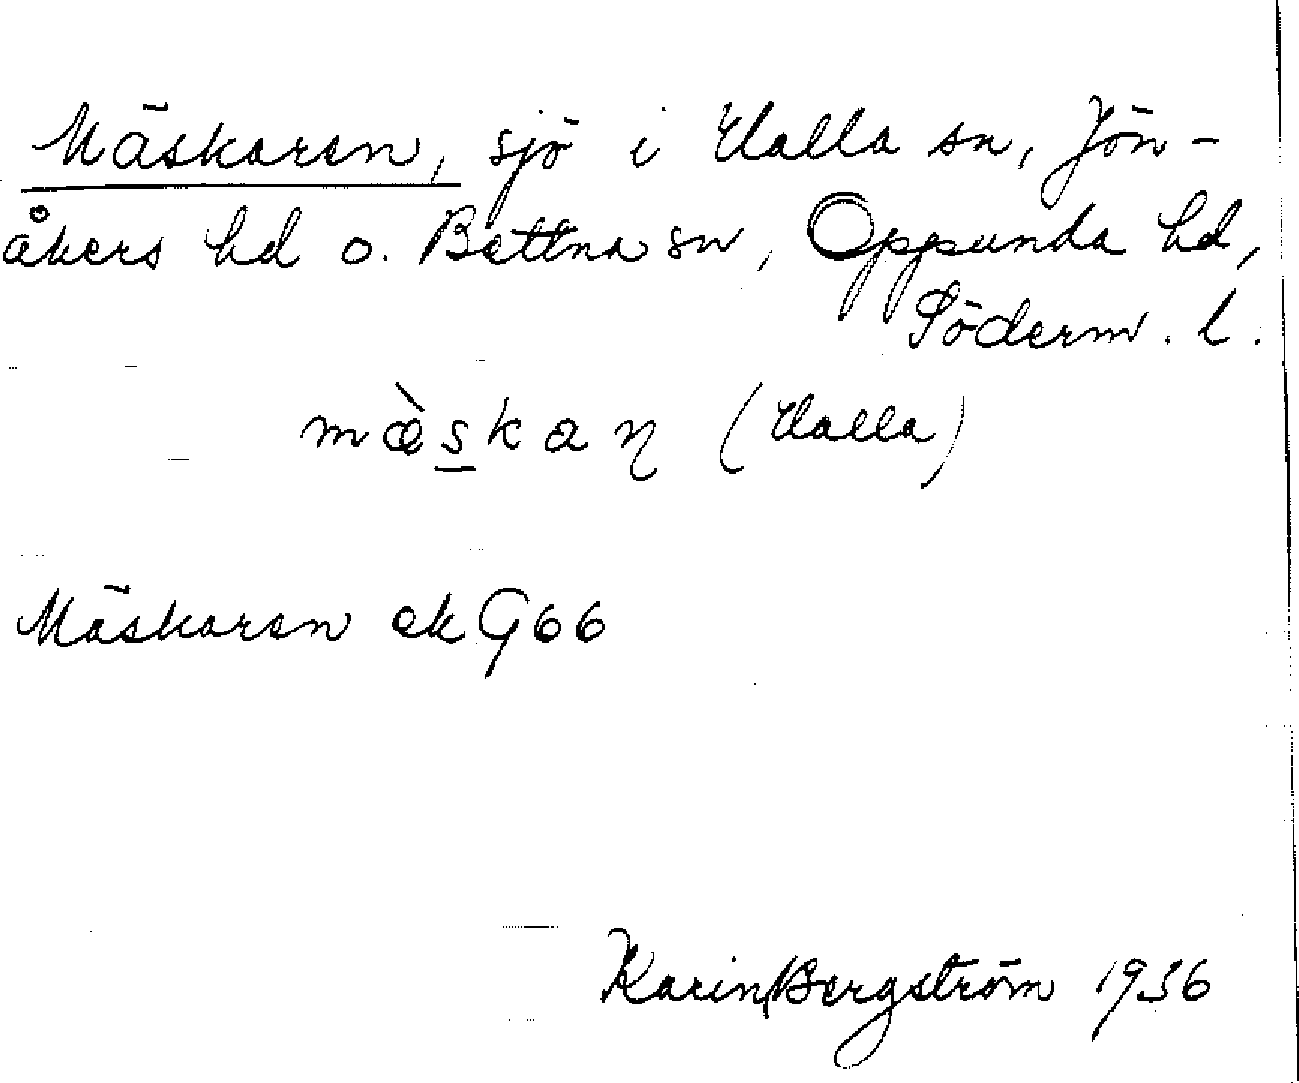 Mäskaren, sjö i Halla sn, Jön-
åkers hd o. Bettna sn, Oppunda hd,
Söderm. l.
mæ̀skaꞃ (Halla)
Mäskaren ek G66
Karin Bergström 1936